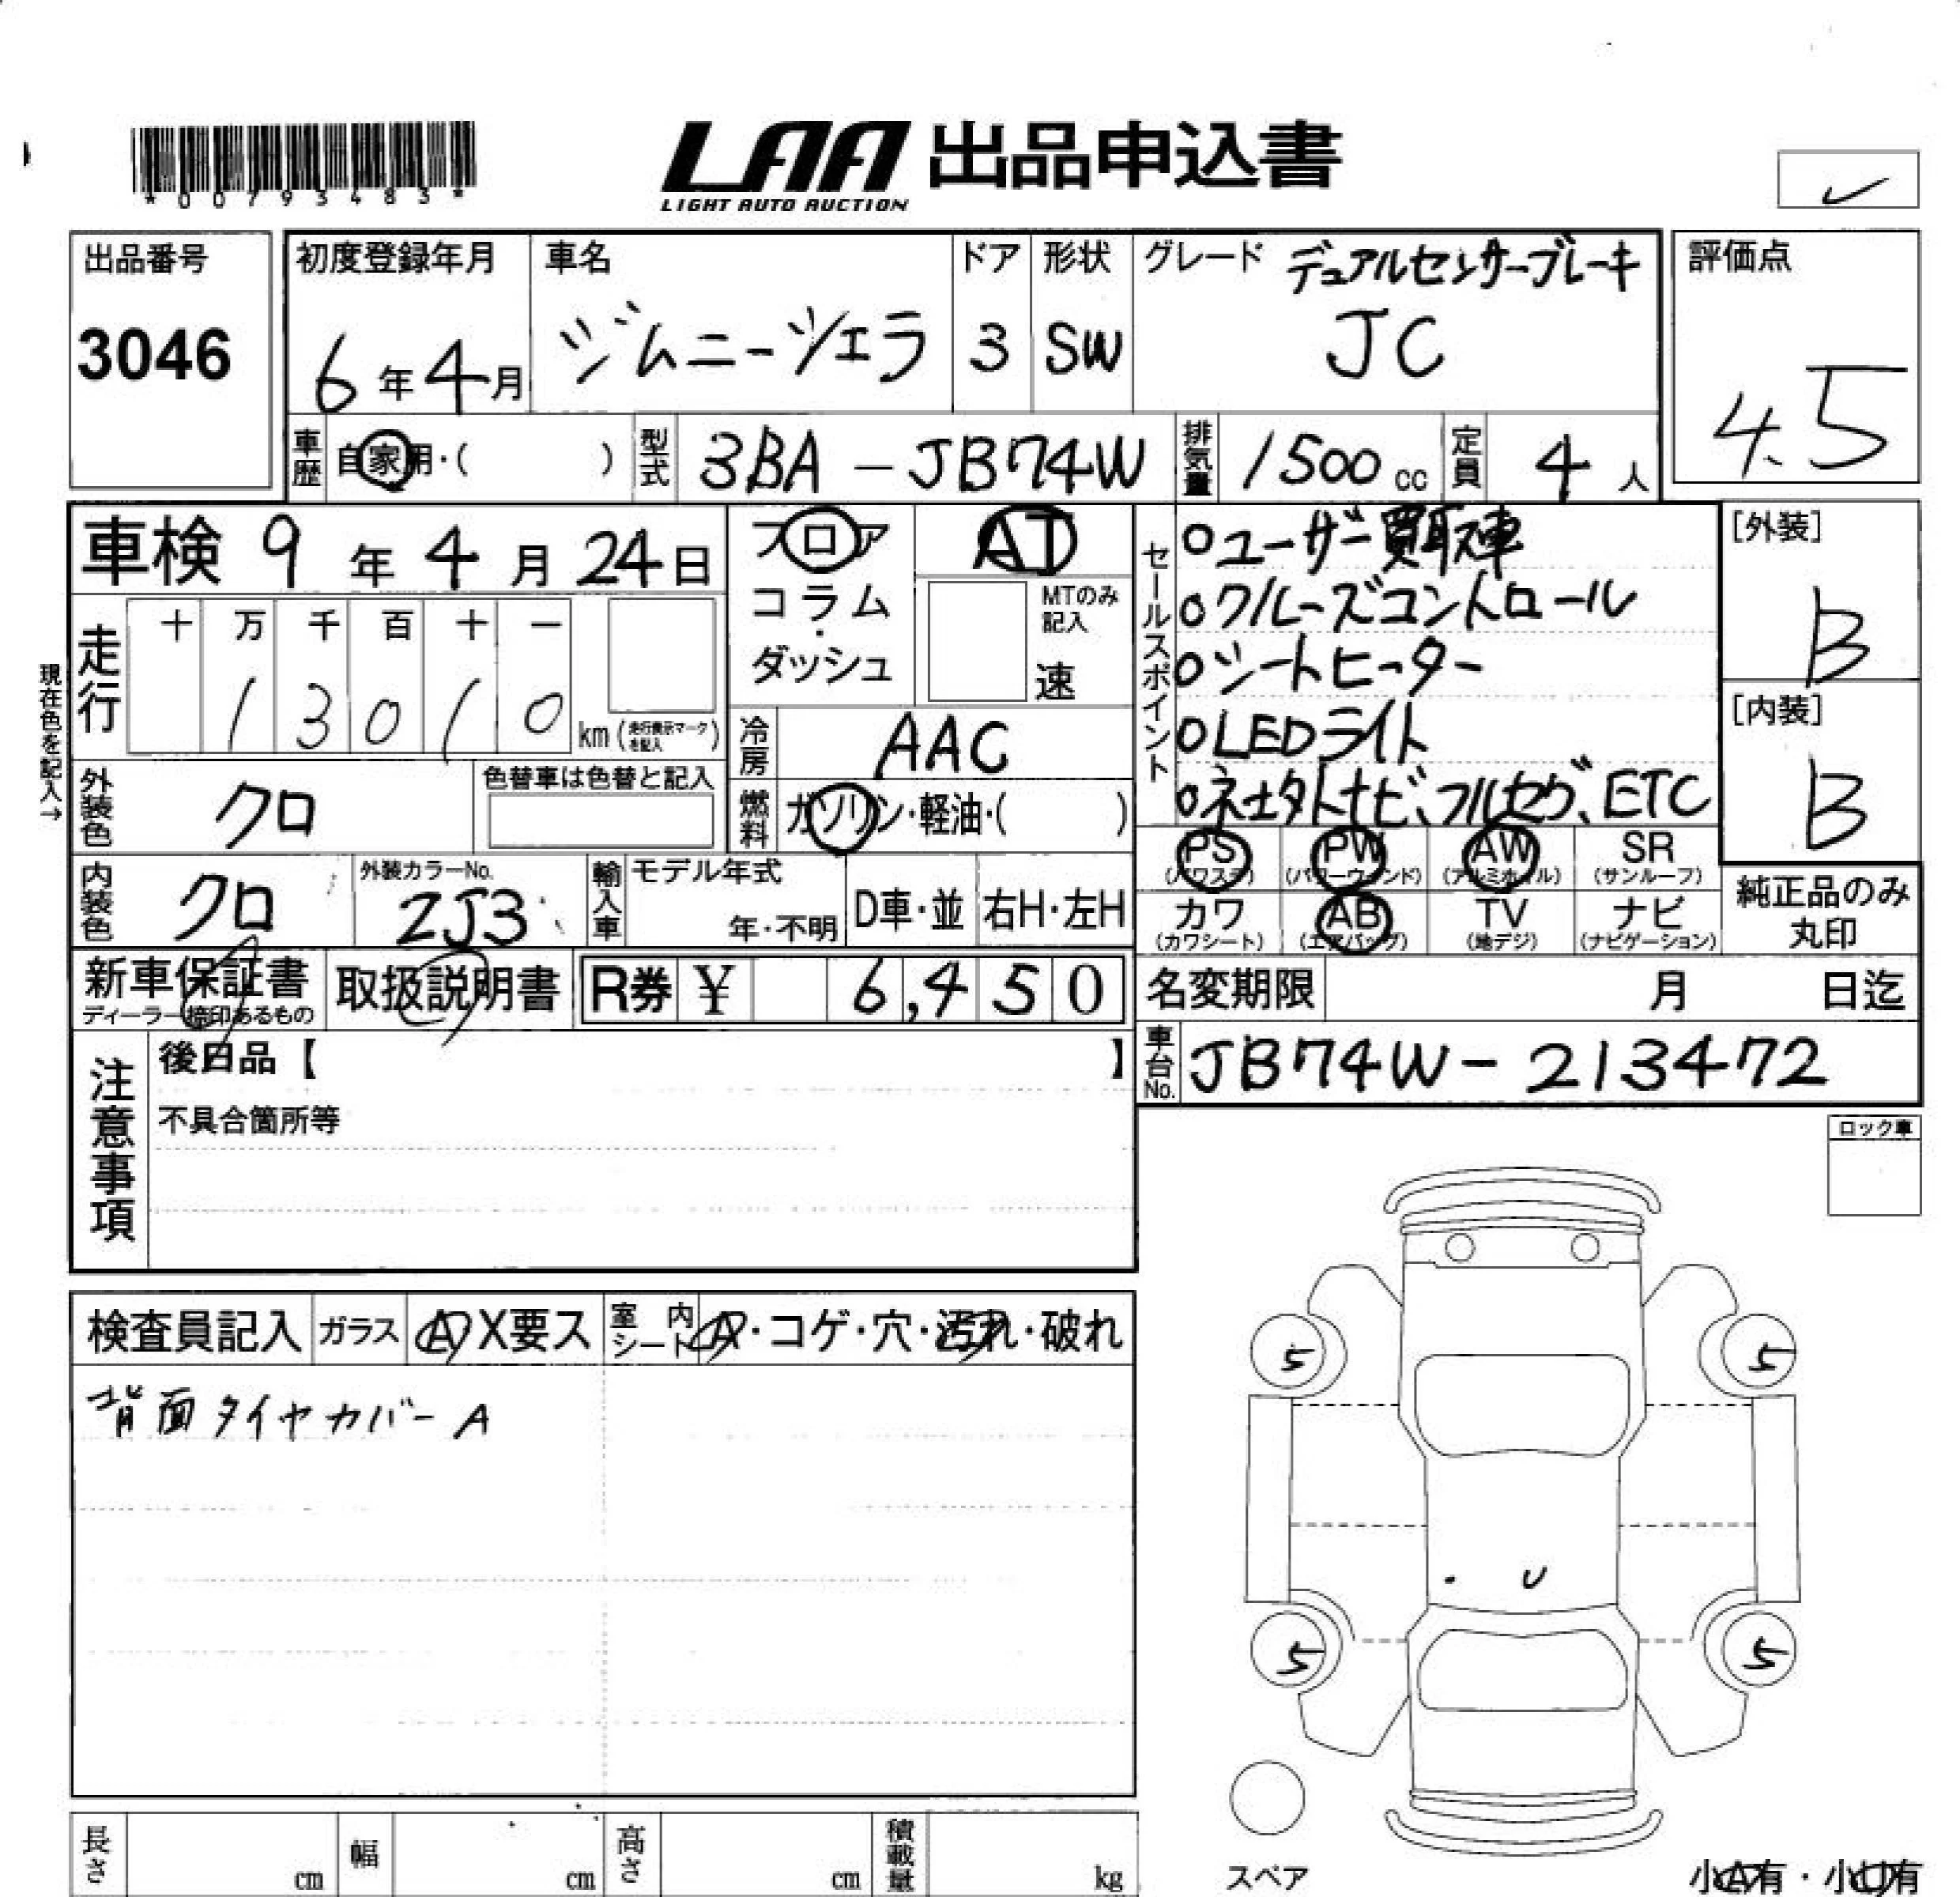 *00793483*
LAA 出品申込書
LIGHT AUTO AUCTION
出品番号
3046
初度登録年月
6年4月
車名
ジムニーシエラ
ドア
3
形状
SW
グレード
デュアルセンサーブレーキ
JC
評価点
4.5
車歴
自家用・( )
型式
3BA-JB74W
排気量
1500cc
定員
4人
車検 9年4月24日
フロア
コラム
・
ダッシュ
AT
MTのみ
記入
速
現在色を記入→
走行
十 万 千 百 十 一
1 3 0 1 0
km (走行表示マークを記入)
冷房
AAC
燃料
ガソリン・軽油・( )
外装色
クロ
色替車は色替と記入
内装色
クロ
外装カラーNo.
ZJ3
輸入車
モデル年式
年・不明
D車・並
右H・左H
セールスポイント
○ユーザー買取車
○クルーズコントロール
○シートヒーター
○LEDライト
○ネオタトナビ、フルセグ、ETC
[外装]
B
[内装]
B
PS
(パワステ)
PW
(パワーウインド)
AW
(アルミホイル)
SR
(サンルーフ)
カワ
(カワシート)
AB
(エアバッグ)
TV
(地デジ)
ナビ
(ナビゲーション)
純正品のみ
丸印
新車保証書
ディーラー捺印あるもの
取扱説明書
R券 ¥ 6,450
名変期限 月 日迄
車台No.
JB74W-213472
注意事項
後日品【 】
不具合箇所等
ロック車
検査員記入
ガラス
A X要ス
室内シート
A・コゲ・穴・汚れ・破れ
背面タイヤカバーA
5 5
U
5 5
スペア
小A有・小U有
長さ cm
幅 cm
高さ cm
積載量 kg